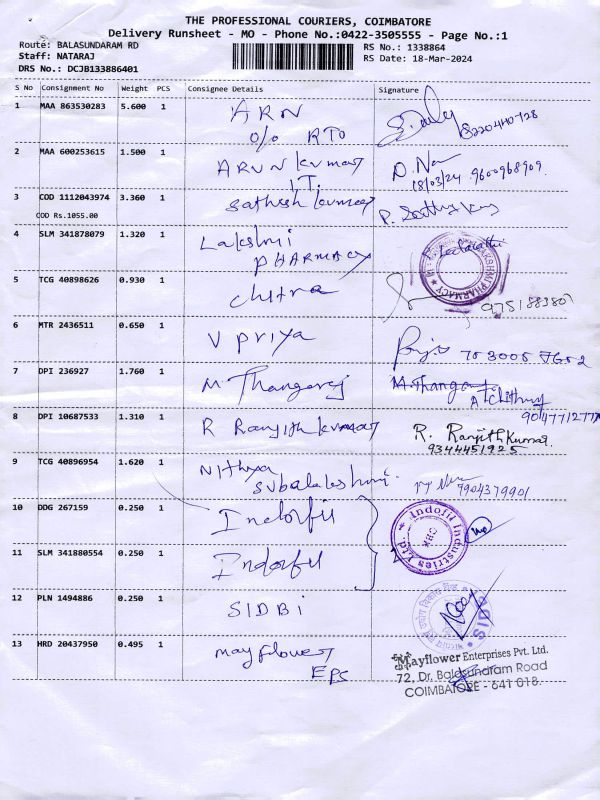 THE PROFESSIONAL COURIERS, COIMBATORE
Delivery Runsheet - MO - Phone No.:0422-3505555 - Page No.:1
Route: BALASUNDARAM RD
RS No.: 1338864
Staff: NATARAJ
RS Date: 18-Mar-2024
DRS No.: DCJB133886401
S No Consignment No Weight PCS Consignee Details Signature
1 MAA 863530283 5.600 1 ARN
O/O RTO
2 MAA 600253615 1.500 1 ARUN kumar
IT.
18/03/24 9600968909.
3 COD 1112043974 3.360 1 Sathesh kumar
COD Rs.1055.00
4 SLM 341878079 1.320 1 Lakshmi
PHARMACY
LAKSHMI PHARMACY
5 TCG 40898626 0.930 1 Chitra
6 MTR 2436511 0.650 1 V priya
7 DPI 236927 1.760 1 M Thangaraj
8 DPI 10687533 1.310 1 R Ranjith kumar R. Ranjith Kumar.
9344451925
9 TCG 40896954 1.620 1 Nithya
Subalakshmi.
7904379901
10 DDG 267159 0.250 1 Indorfil
Indofil Industries Ltd.
CBK
11 SLM 341880554 0.250 1 Indorfil
12 PLN 1494886 0.250 1 SIDBI
13 HRD 20437950 0.495 1 mayflower
EPS
Mayflower Enterprises Pvt. Ltd.
72, Dr. Balasundram Road
COIMBATORE - 641 018.